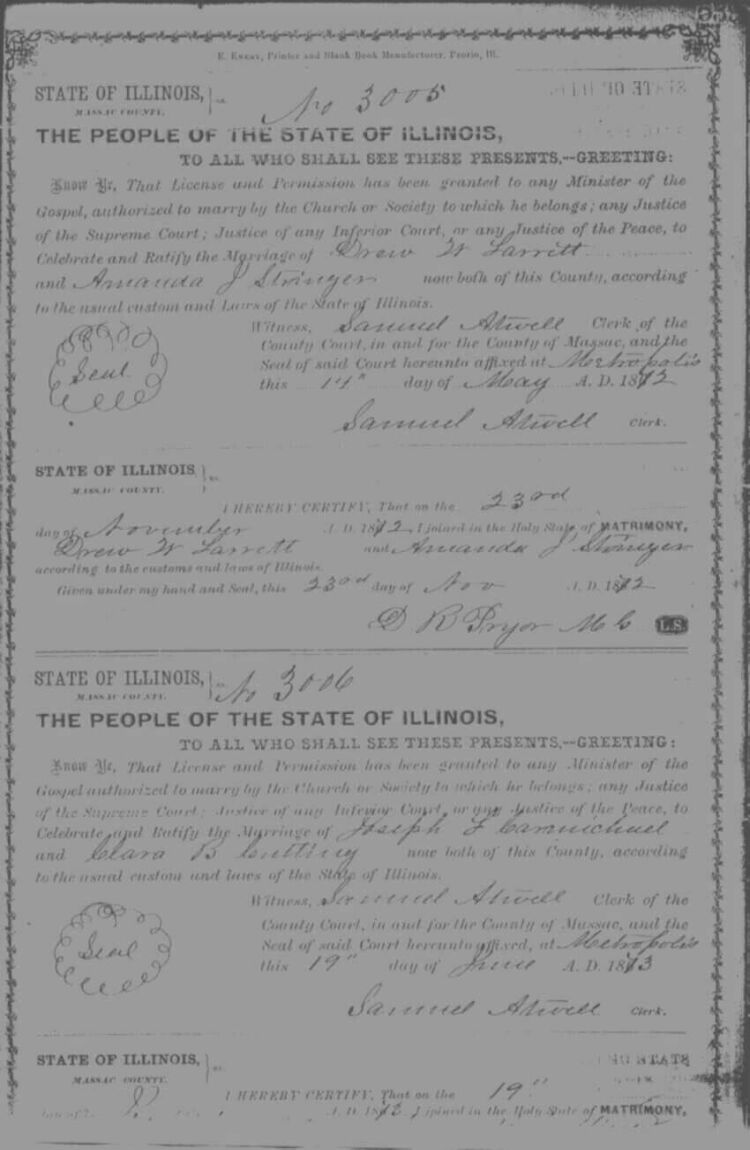 E. Knery, Printer and Blank Book Manufacturer, Peoria, Ill.
STATE OF ILLINOIS,
MASSAC COUNTY.
No 3005
THE PEOPLE OF THE STATE OF ILLINOIS,
TO ALL WHO SHALL SEE THESE PRESENTS,--GREETING:
Know Ye, That License and Permission has been granted to any Minister of the
Gospel, authorized to marry by the Church or Society to which he belongs; any Justice
of the Supreme Court; Justice of any Inferior Court, or any Justice of the Peace, to
Celebrate and Ratify the Marriage of Drew W Larrett
and Amanda J Stringer now both of this County, according
to the usual custom and Laws of the State of Illinois.
Witness, Samuel Atwell Clerk of the
County Court, in and for the County of Massac, and the
Seal of said Court hereunto affixed at Metropolis
this 14" day of May A. D. 1872
Seal
Samuel Atwell Clerk.
STATE OF ILLINOIS
MASSAC COUNTY.
I HEREBY CERTIFY, That on the 23rd
day of November A. D. 1872, I joined in the Holy State of MATRIMONY,
Drew W Larrett and Amanda J Stringer
according to the customs and laws of Illinois.
Given under my hand and Seal, this 23rd day of Nov A. D. 1872
D R Pryor M G L.S.
STATE OF ILLINOIS,
MASSAC COUNTY.
No 3006
THE PEOPLE OF THE STATE OF ILLINOIS,
TO ALL WHO SHALL SEE THESE PRESENTS,--GREETING:
Know Ye, That License and Permission has been granted to any Minister of the
Gospel authorized to marry by the Church or Society to which he belongs; any Justice
of the Supreme Court; Justice of any Inferior Court, or any Justice of the Peace, to
Celebrate and Ratify the Marriage of Joseph F Carmichael
and Clara B Cutting now both of this County, according
to the usual custom and laws of the State of Illinois.
Witness, Samuel Atwell Clerk of the
County Court, in and for the County of Massac, and the
Seal of said Court hereunto affixed, at Metropolis
this 19" day of June A. D. 1873
Seal
Samuel Atwell Clerk.
STATE OF ILLINOIS,
MASSAC COUNTY.
I HEREBY CERTIFY, That on the 19"
A. D. 1873 I joined in the Holy State of MATRIMONY,